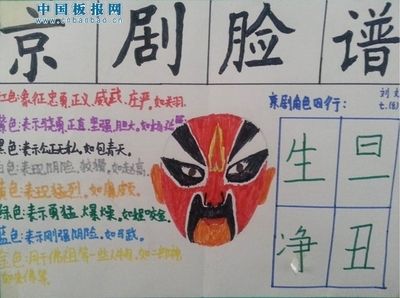 中国板报网
www.cnbanbao.cn
京剧脸谱
红色:象征忠勇,正义,威武,庄严,如关羽.
紫色:表示骁勇,正直,坚强,胆大,如
黑色:表示公正无私,如包青天.
白色:表现阴险,狡猾,如赵高.
黄色:表现猛烈,如廉颇.
绿色:表示勇猛,爆燥,如程咬金.
蓝色:表示刚强阴险,如
金色:用于佛祖等一些人物,如二郎神,
京剧角色四行:
刘
生 旦
净 丑